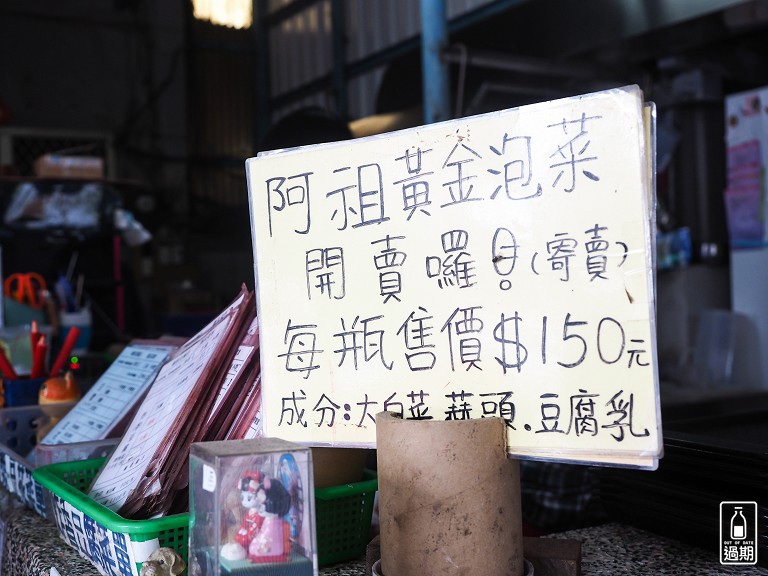 阿祖黃金泡菜
開賣囉!(寄賣)
每瓶售價$150元
成分:大白菜.蒜頭.豆腐乳
OUT OF DATE
過期